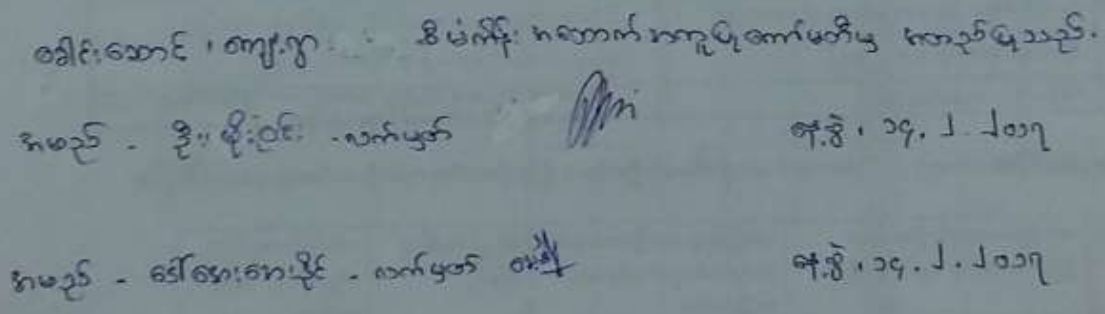 ခေါင်းဆောင် ၊ ကျေးရွာ စီမံကိန်း အထောက်အကူပြုကော်မတီမှ အတည်ပြုသည်.
အမည် - ဦး မိုးဝင်း - လက်မှတ် နေ့စွဲ ၊ ၁၄. ၂. ၂၀၁၇
အမည် - ဒေါ်အေးအေးခိုင် - လက်မှတ် နေ့စွဲ ၊ ၁၄. ၂. ၂၀၁၇